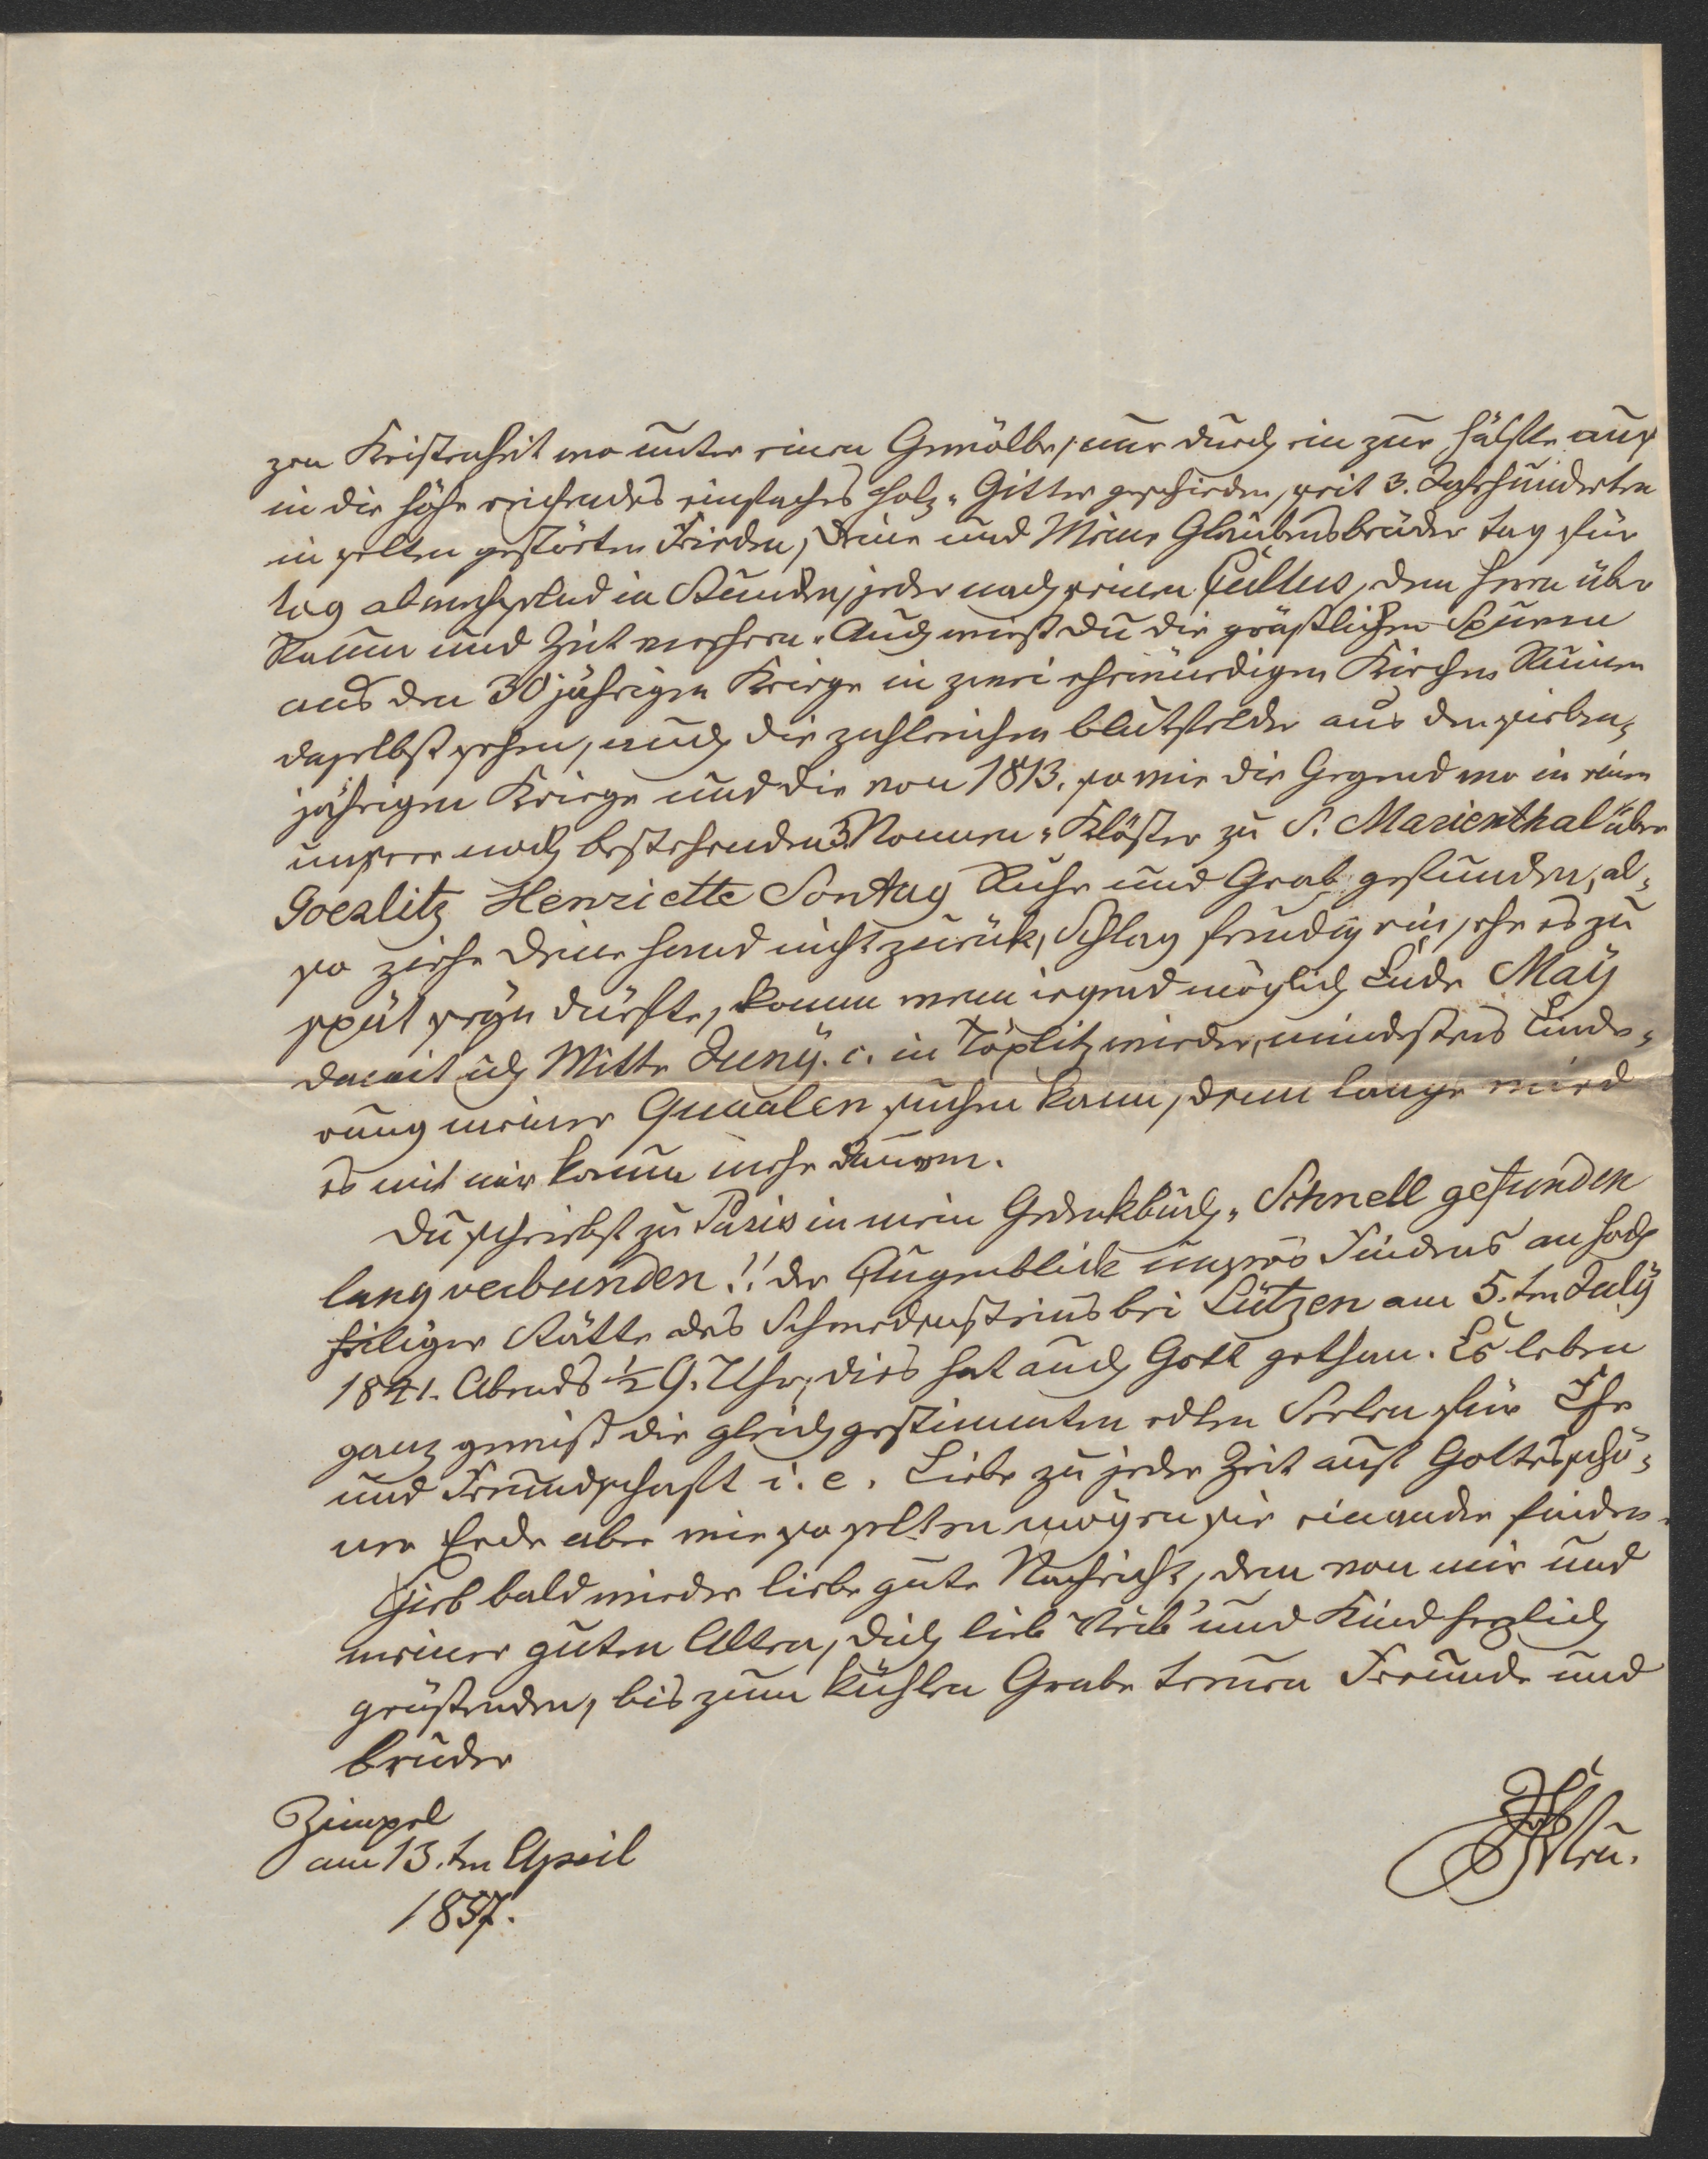 zen Kristenheit wo unter einem Gewölbe, nur durch ein zur Hälfte auf
in die Höhe reichendes einfaches Holz-Gitter geschieden, seit 3. Jahrhunderten
in selten gestörten Frieden, Deine und Meine Glaubensbrüder Tag für
Tag abwechselnd in Stunden, jeder nach seinem Cultus, dem Herrn über
Raum und Zeit verehren. Auch wirst Du die grässlichen Spuren
aus den 30jährigen Kriege in zwei ehrwürdigen Kirchen Ruinen
daselbst sehen, auch die zahlreichen Blutfelder aus den sieben-
jährigen Kriege und die von 1813. so wie die Gegend wo in einen
unserer noch bestehenden 3 Nonnen-Klöster zu S. Marienthal über
Goerlitz Henriette Sontag Ruhe und Grab gefunden, al-
so ziehe Deine Hand nicht zurück, Schlag freudig ein, ehe es zu
spät seyn dürfte, komm wenn irgend möglich Ende Maÿ
damit ich Mitte Junÿ. c. in Töplitz wieder, mindestens Linde-
rung meiner Quaalen suchen kann, denn lange wird
es mit mir kaum mehr dauern.
Du schriebst zu Paris in mein Gedenkbuch, „Schnell gefunden
lang verbunden!! der Augenblick unsres Findens an hoch
heiliger Stätte des Schwedensteins bei Lützen am 5.ten Julÿ
1841. Abends ½ 9. Uhr, dies hat auch Gott gethan. Es leben
ganz gewiß die gleichgestimmten edlen Seelen für Ehe
und Freundschaft i. e. Liebe zu jeder Zeit auf Gottes schö-
ner Erde aber wie so selten mögen sie einander finden.
Gieb bald wieder liebe gute Nachricht, dem von mir und
meiner guten Alten, Dich lieb Weib und Kind herzlich
grüssenden, bis zum kühlen Grabe treuen Freunde und
Bruder
Zimpel
am 13.ten April
1857.